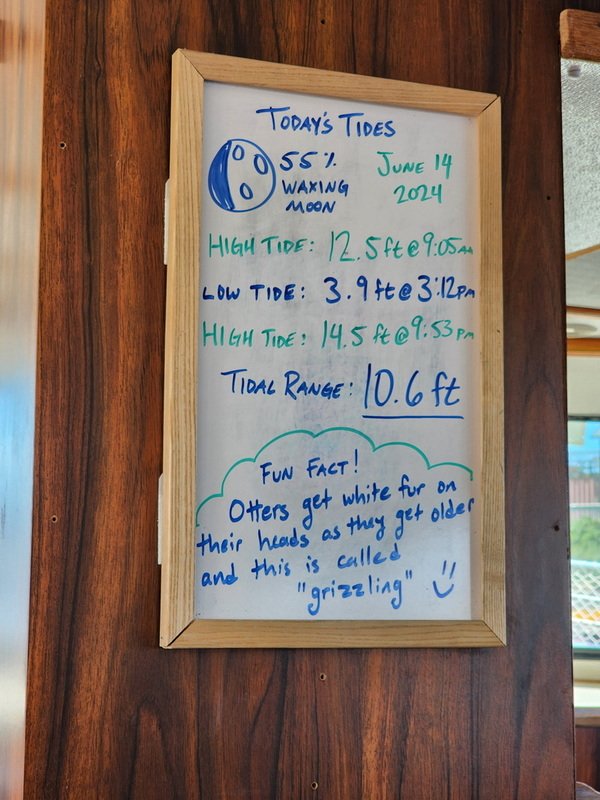 TODAY'S TIDES
55% JUNE 14
WAXING 2024
MOON
HIGH TIDE: 12.5 ft @ 9:05 AM
LOW TIDE: 3.9 ft @ 3:12 PM
HIGH TIDE: 14.5 ft @ 9:53 PM
TIDAL RANGE: 10.6 ft
FUN FACT!
Otters get white fur on
their heads as they get older
and this is called
"grizzling"